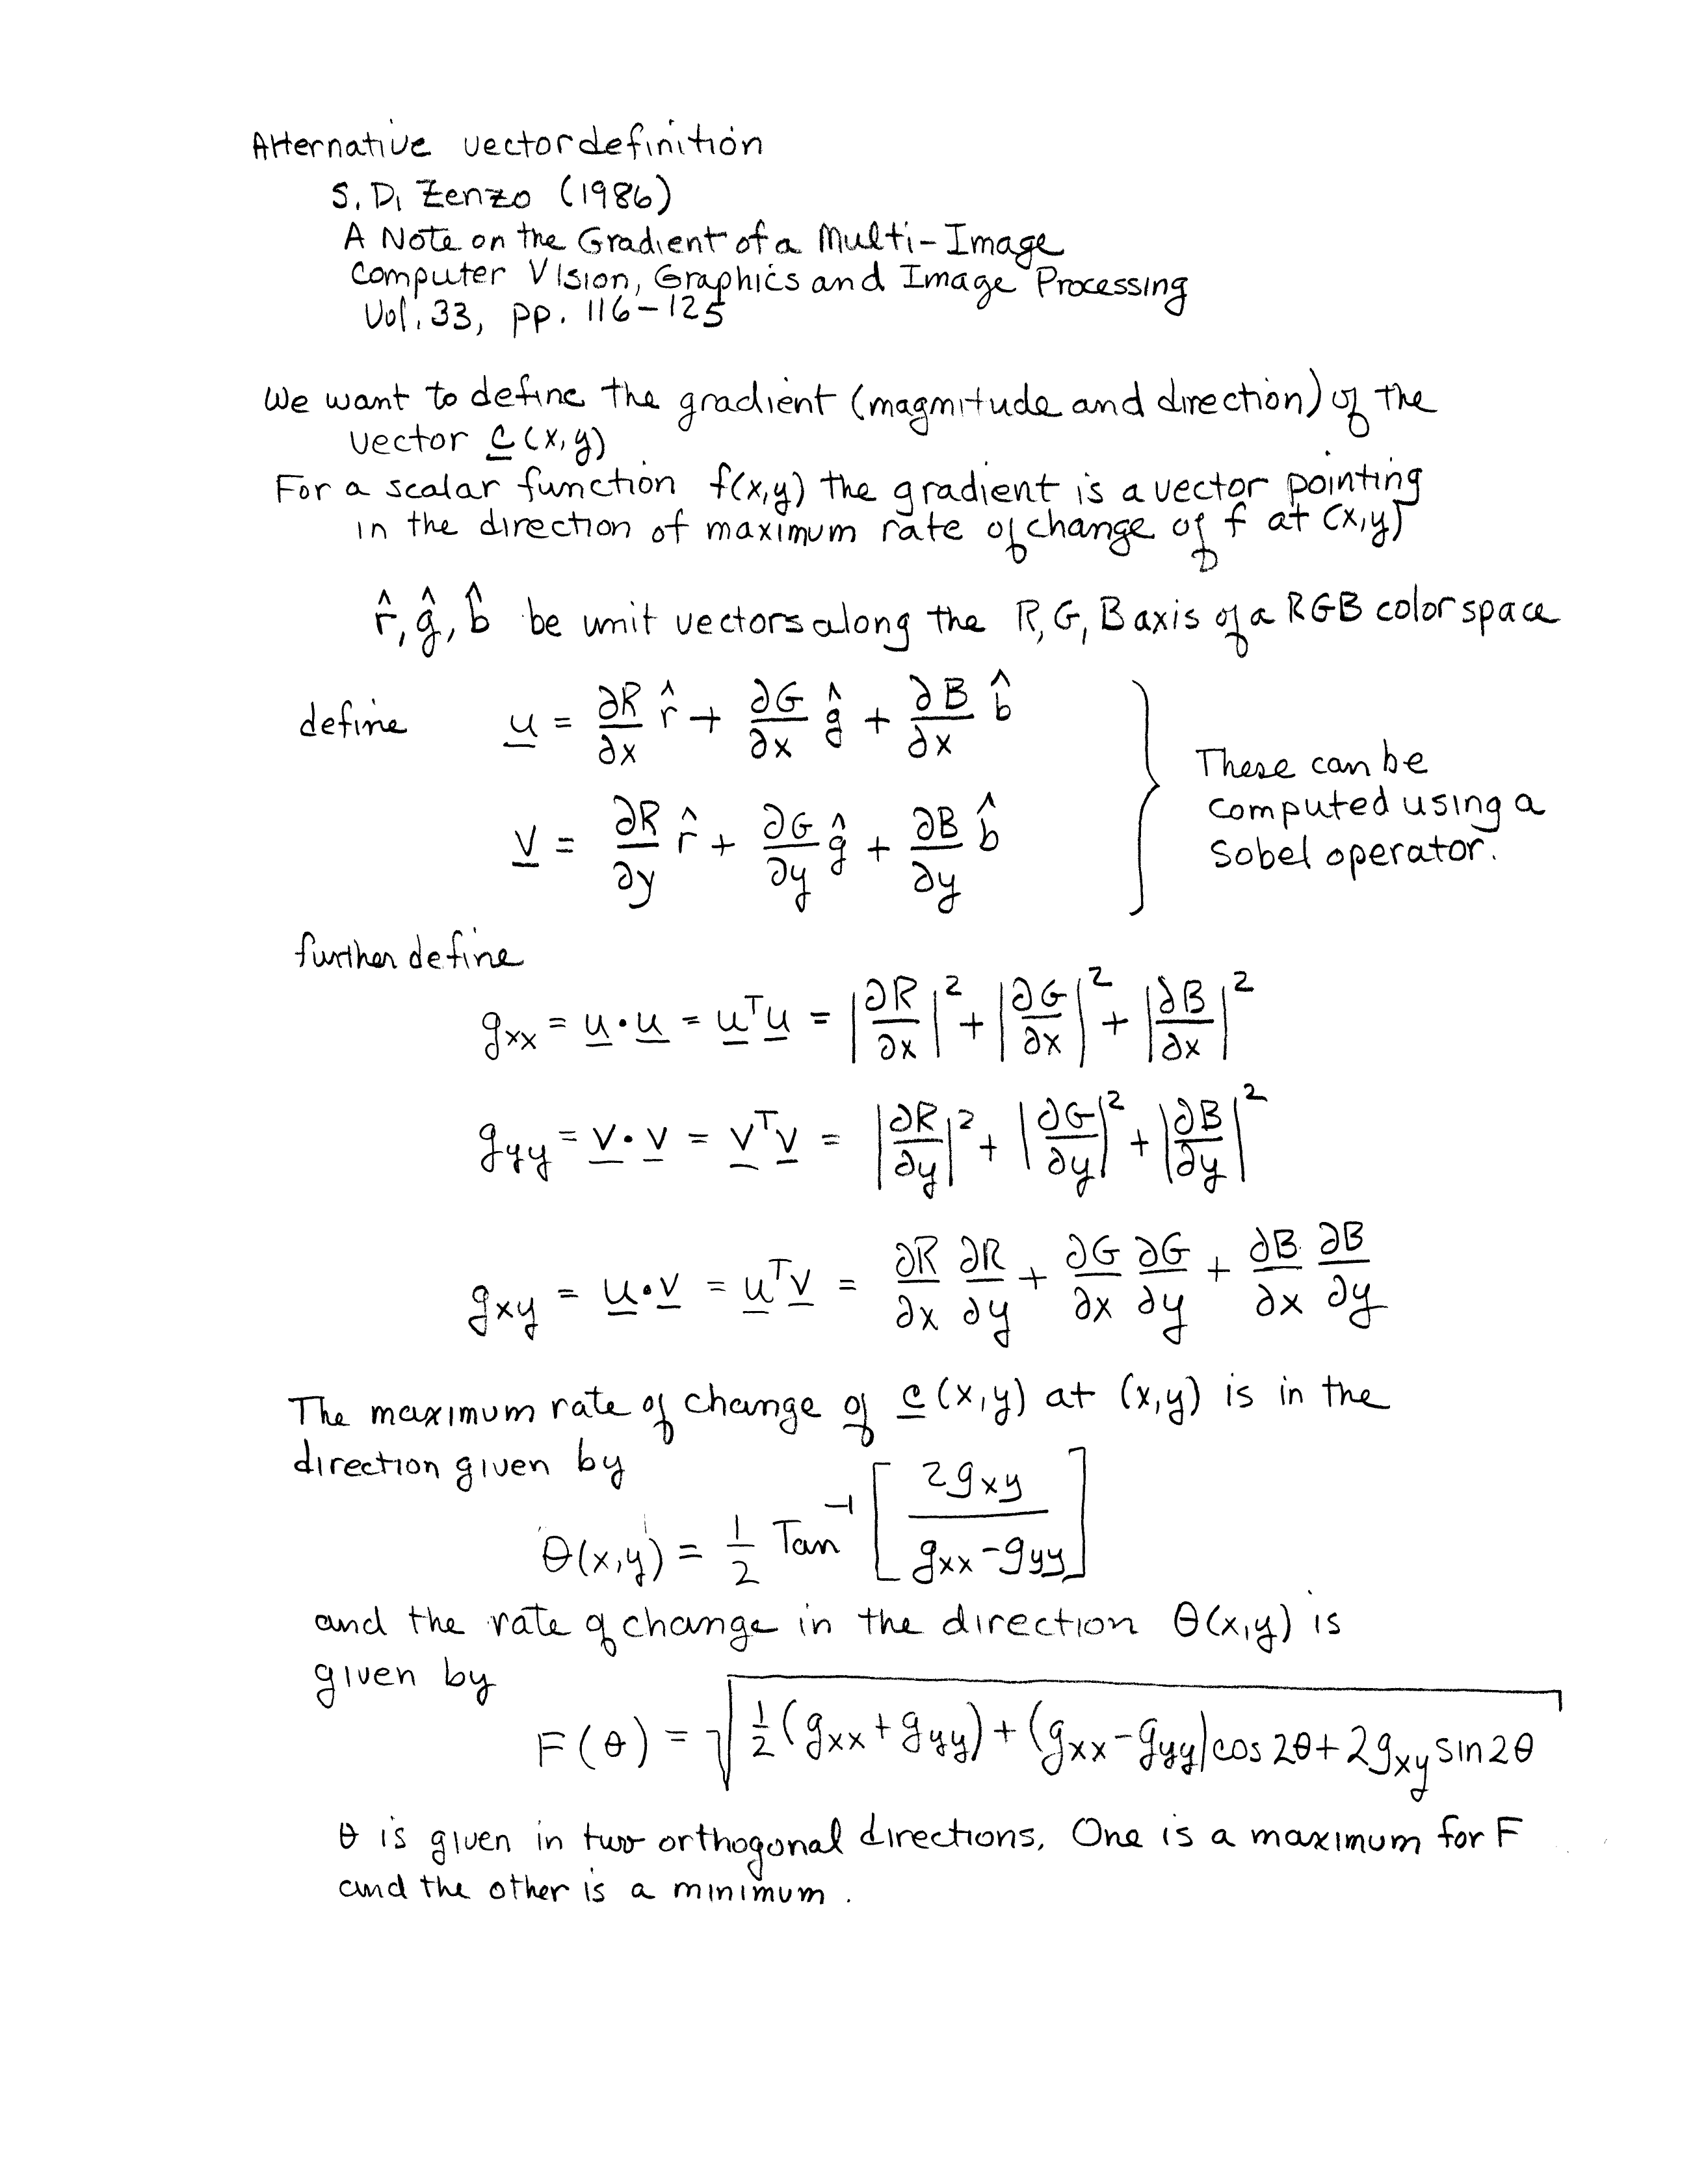 Alternative vector definition
S. Di Zenzo (1986)
A Note on the Gradient of a Multi-Image
Computer Vision, Graphics and Image Processing
Vol. 33, pp. 116-125
We want to define the gradient (magnitude and direction) of the
vector c̲(x,y)
For a scalar function f(x,y) the gradient is a vector pointing
in the direction of maximum rate of change of f at (x,y)
r̂, ĝ, b̂ be unit vectors along the R, G, B axis of a RGB color space
define u̲ = ∂R/∂x r̂ + ∂G/∂x ĝ + ∂B/∂x b̂
v̲ = ∂R/∂y r̂ + ∂G/∂y ĝ + ∂B/∂y b̂
These can be
computed using a
Sobel operator.
further define
gxx = u̲·u̲ = u̲ᵀu̲ = |∂R/∂x|² + |∂G/∂x|² + |∂B/∂x|²
gyy = v̲·v̲ = v̲ᵀv̲ = |∂R/∂y|² + |∂G/∂y|² + |∂B/∂y|²
gxy = u̲·v̲ = u̲ᵀv̲ = ∂R/∂x ∂R/∂y + ∂G/∂x ∂G/∂y + ∂B/∂x ∂B/∂y
The maximum rate of change of c̲(x,y) at (x,y) is in the
direction given by
θ(x,y) = 1/2 Tan⁻¹ [2gxy / (gxx - gyy)]
and the rate of change in the direction θ(x,y) is
given by
F(θ) = √(½(gxx + gyy) + (gxx - gyy) cos 2θ + 2gxy sin 2θ)
θ is given in two orthogonal directions. One is a maximum for F
and the other is a minimum.